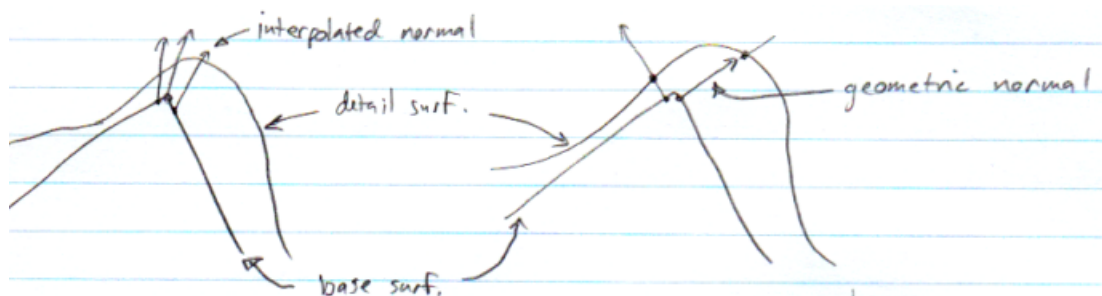 interpolated normal
detail surf.
geometric normal
base surf.